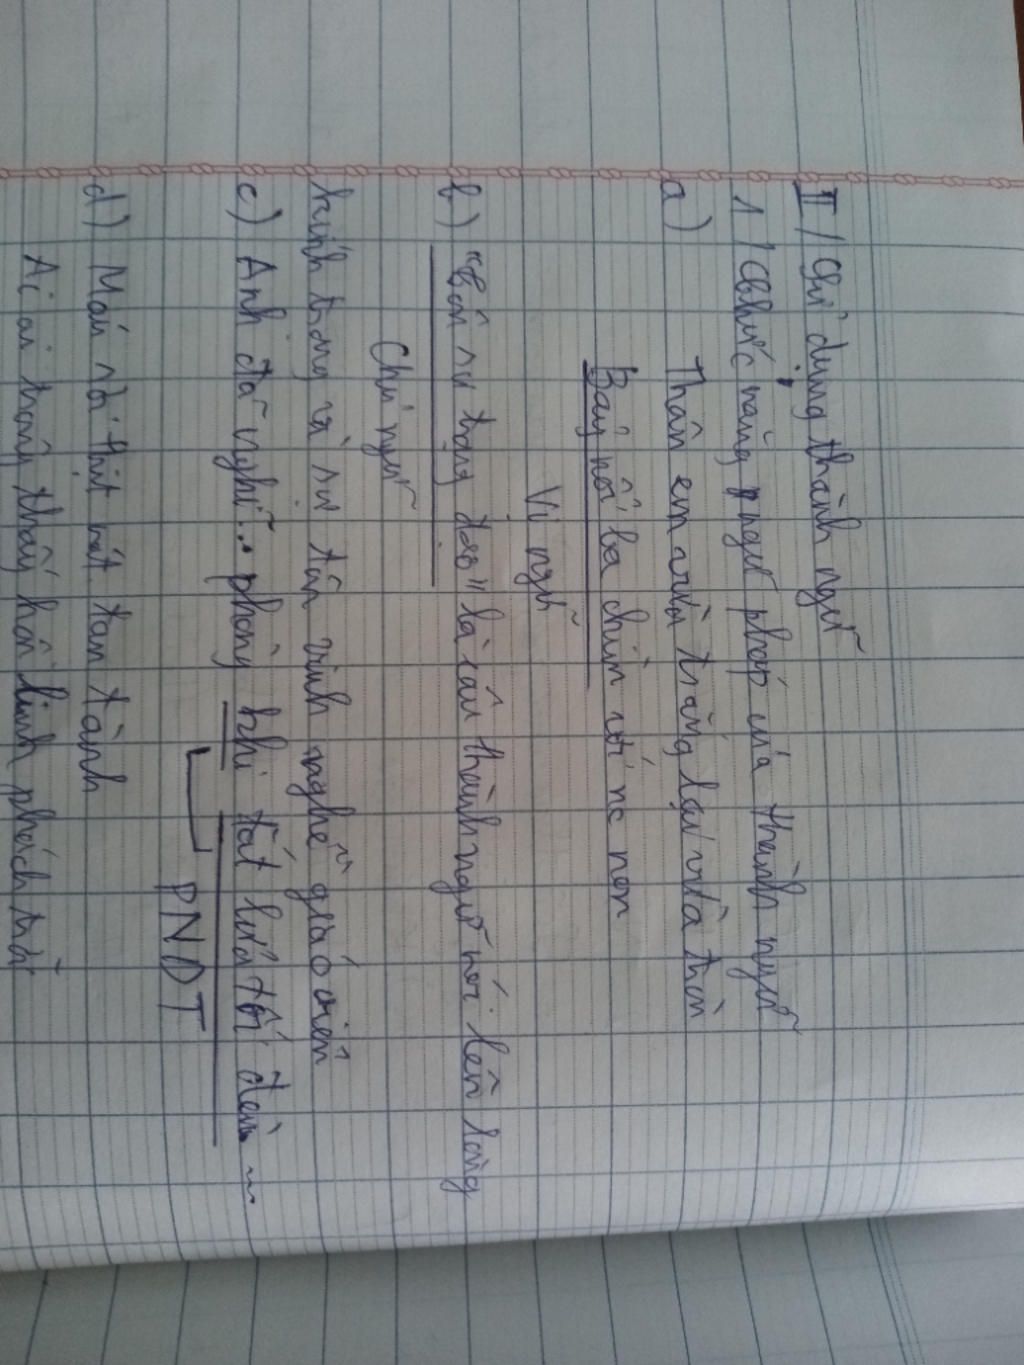 II/ Sử dụng thành ngữ
1/ Chức năng ngữ pháp của thành ngữ
a) Thân em vừa trắng lại vừa tròn
Bảy nổi ba chìm với nước non
Vị ngữ
b) "Tôn sư trọng đạo" là câu thành ngữ nói lên lòng
Chủ ngữ
kính trọng và sự tôn vinh nghề giáo viên
c) Anh đã nghĩ... phòng khi tắt lửa tối đèn
PNDT
d) thịt nát tan tành
Ai ai trông thấy hồn kinh phách